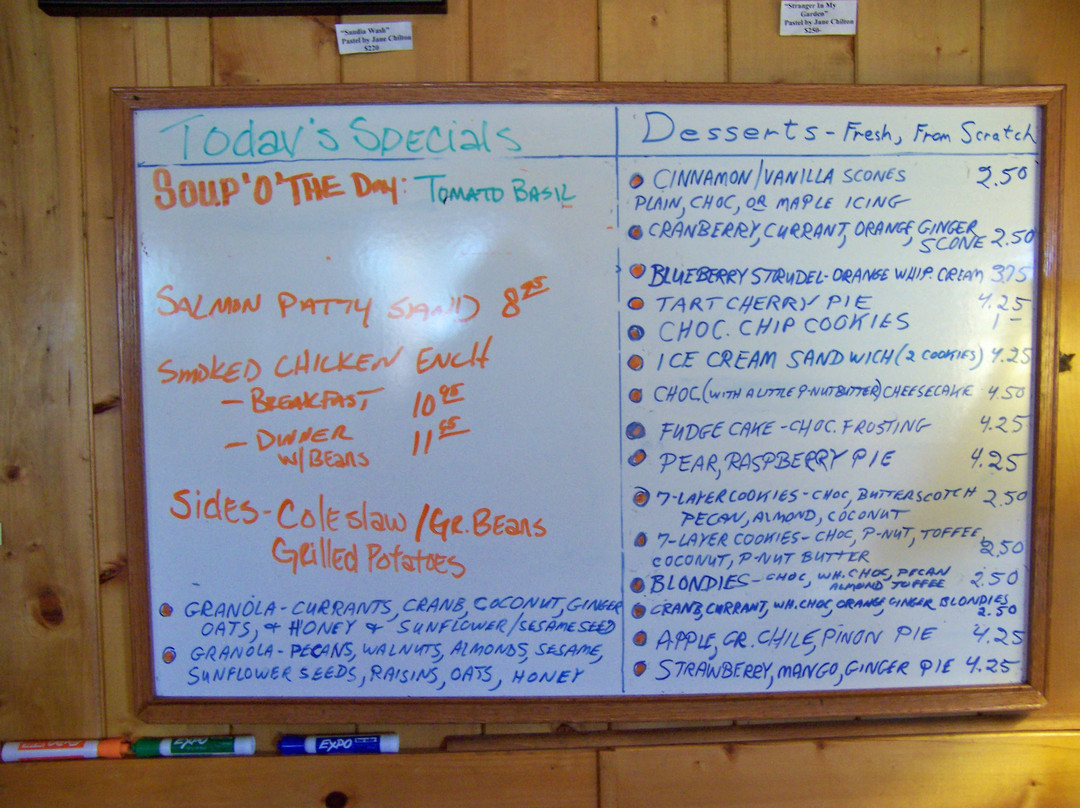 "Sandia Wash"
Pastel by Jane Chilton
$220
"Stranger In My
Garden"
Pastel by Jane Chilton
$250-
Today's Specials
SOUP 'O' THE DAY: TOMATO BASIL
SALMON PATTY SAND 8.95
SMOKED CHICKEN ENCH
- BREAKFAST 10.95
- DINNER 11.95
W/BEANS
Sides - Coleslaw / GR. Beans
Grilled Potatoes
GRANOLA - CURRANTS, CRANB, COCONUT, GINGER
OATS, & HONEY & SUNFLOWER/SESAME SEED
GRANOLA - PECANS, WALNUTS, ALMONDS, SESAME,
SUNFLOWER SEEDS, RAISINS, OATS, HONEY
Desserts - Fresh, From Scratch
CINNAMON/VANILLA SCONES 2.50
PLAIN, CHOC, OR MAPLE ICING
CRANBERRY, CURRANT, ORANGE, GINGER
SCONE 2.50
BLUEBERRY STRUDEL - ORANGE WHIP. CREAM 3.75
TART CHERRY PIE 4.25
CHOC. CHIP COOKIES 1 -
ICE CREAM SANDWICH (2 COOKIES) 4.25
CHOC (WITH A LITTLE P-NUT BUTTER) CHEESECAKE 4.50
FUDGE CAKE - CHOC. FROSTING 4.25
PEAR, RASPBERRY PIE 4.25
7-LAYER COOKIES - CHOC, BUTTERSCOTCH 2.50
PECAN, ALMOND, COCONUT
7-LAYER COOKIES - CHOC, P-NUT, TOFFEE,
COCONUT, P-NUT BUTTER 2.50
BLONDIES - CHOC, WH. CHOC, PECAN 2.50
ALMOND TOFFEE
CRANB, CURRANT, WH. CHOC, ORANGE GINGER BLONDIES
2.50
APPLE, GR. CHILE, PINON PIE 4.25
STRAWBERRY, MANGO, GINGER PIE 4.25
EXPO
EXPO